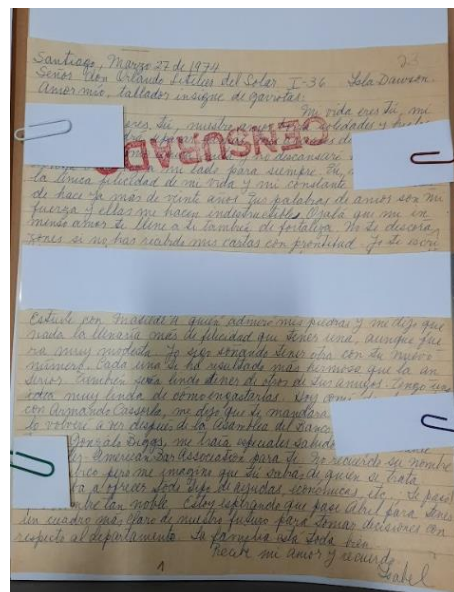 23
Santiago, Marzo 27 de 1974
Señor don Orlando Letelier del Solar I-36 Isla Dawson.
Amor mío, tallador insigne de garrotas:
Mi vida eres tú, mi
eres tú, nuestro amor
CENSURADO
no descansaré
mi lado para siempre. Tú,
la única felicidad de mi vida y mi constante
de hace ya más de veinte años. Tus palabras de amor son mi
fuerza y ellas me hacen indestructible. Ojalá que mi in-
menso amor te llene a ti también de fortaleza. No te descora-
zones si no has recibido mis cartas con prontitud. Yo te escri
Estuve con a quién admiró mis piedras y me dijo que
nada la llenaría más de felicidad que tener una, aunque fue
ra muy modesta. Yo sigo soñando tener otra con tu nuevo
número. Cada una te ha resultado más hermosa que la an
terior. También sería lindo tener de otros de tus amigos. Tengo una
idea muy linda de como engastarlas.
con Armando Cassorla, me dijo que te mandara
lo volveré a ver después de la asamblea del Banco
Gonzalo me traía especiales saludos
American Bar Association para ti. No recuerdo su nombre
pero me imagino que tú sabrás de quien se trata
a ofrecer todo tipo de ayudas, económicas, etc. Se pasó
hombre tan noble. Estoy esperando que pase Abril para tener
un cuadro más claro de nuestro futuro para tomar decisiones con
respecto al departamento. La familia está toda bien.
Recibe mi amor y recuerdo
Isabel
1